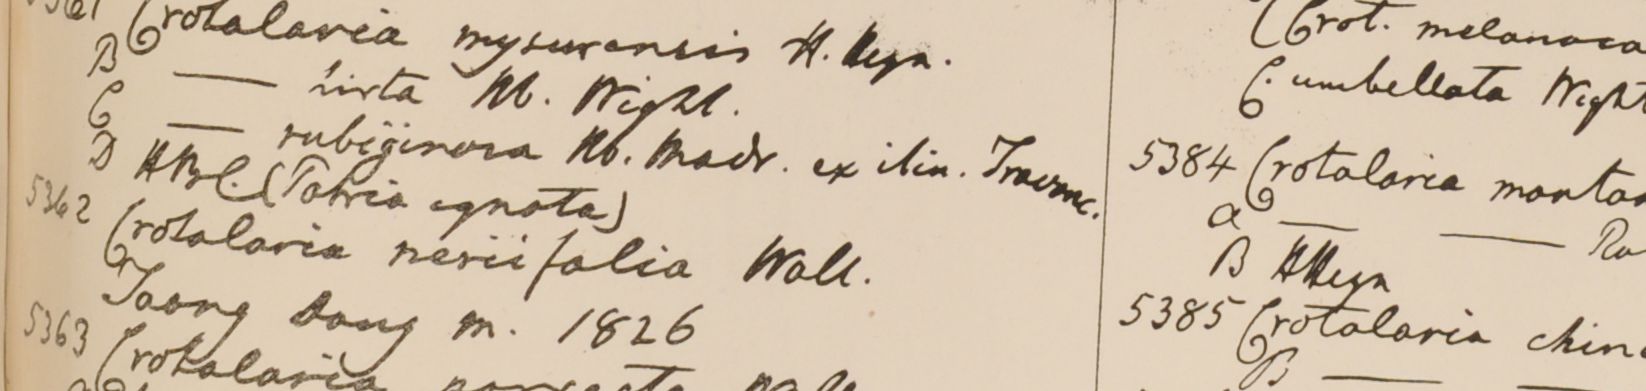 5361 Crotalaria mysurensis H. Heyn.
B — hirta Hb. Wight.
C — rubiginosa Hb. Madr. ex itin. Travanc.
D HBC. (Patria ignota)
5362 Crotalaria neriifolia Wall.
Taong Dong m. 1826
5363 Crotalaria Wall
Crot. melanoca
C. umbellata Wight
5384 Crotalaria montan
a — — Ro
B HHeyn
5385 Crotalaria chine
B —